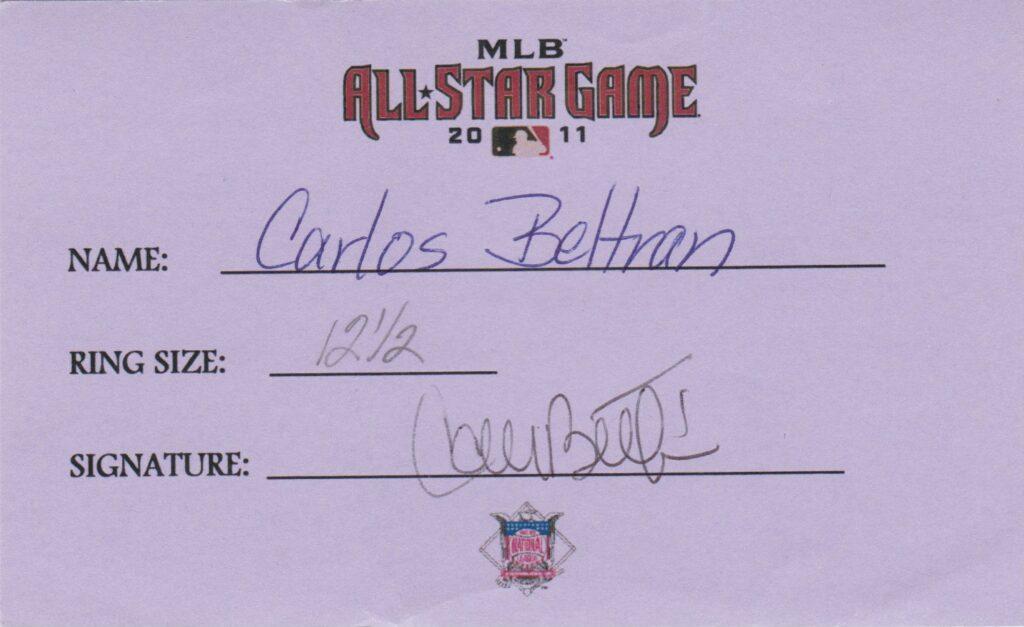 MLB™
ALL★STAR GAME
20 11
NAME: Carlos Beltran
RING SIZE: 12 1/2
SIGNATURE:
NATIONAL
LEAGUE